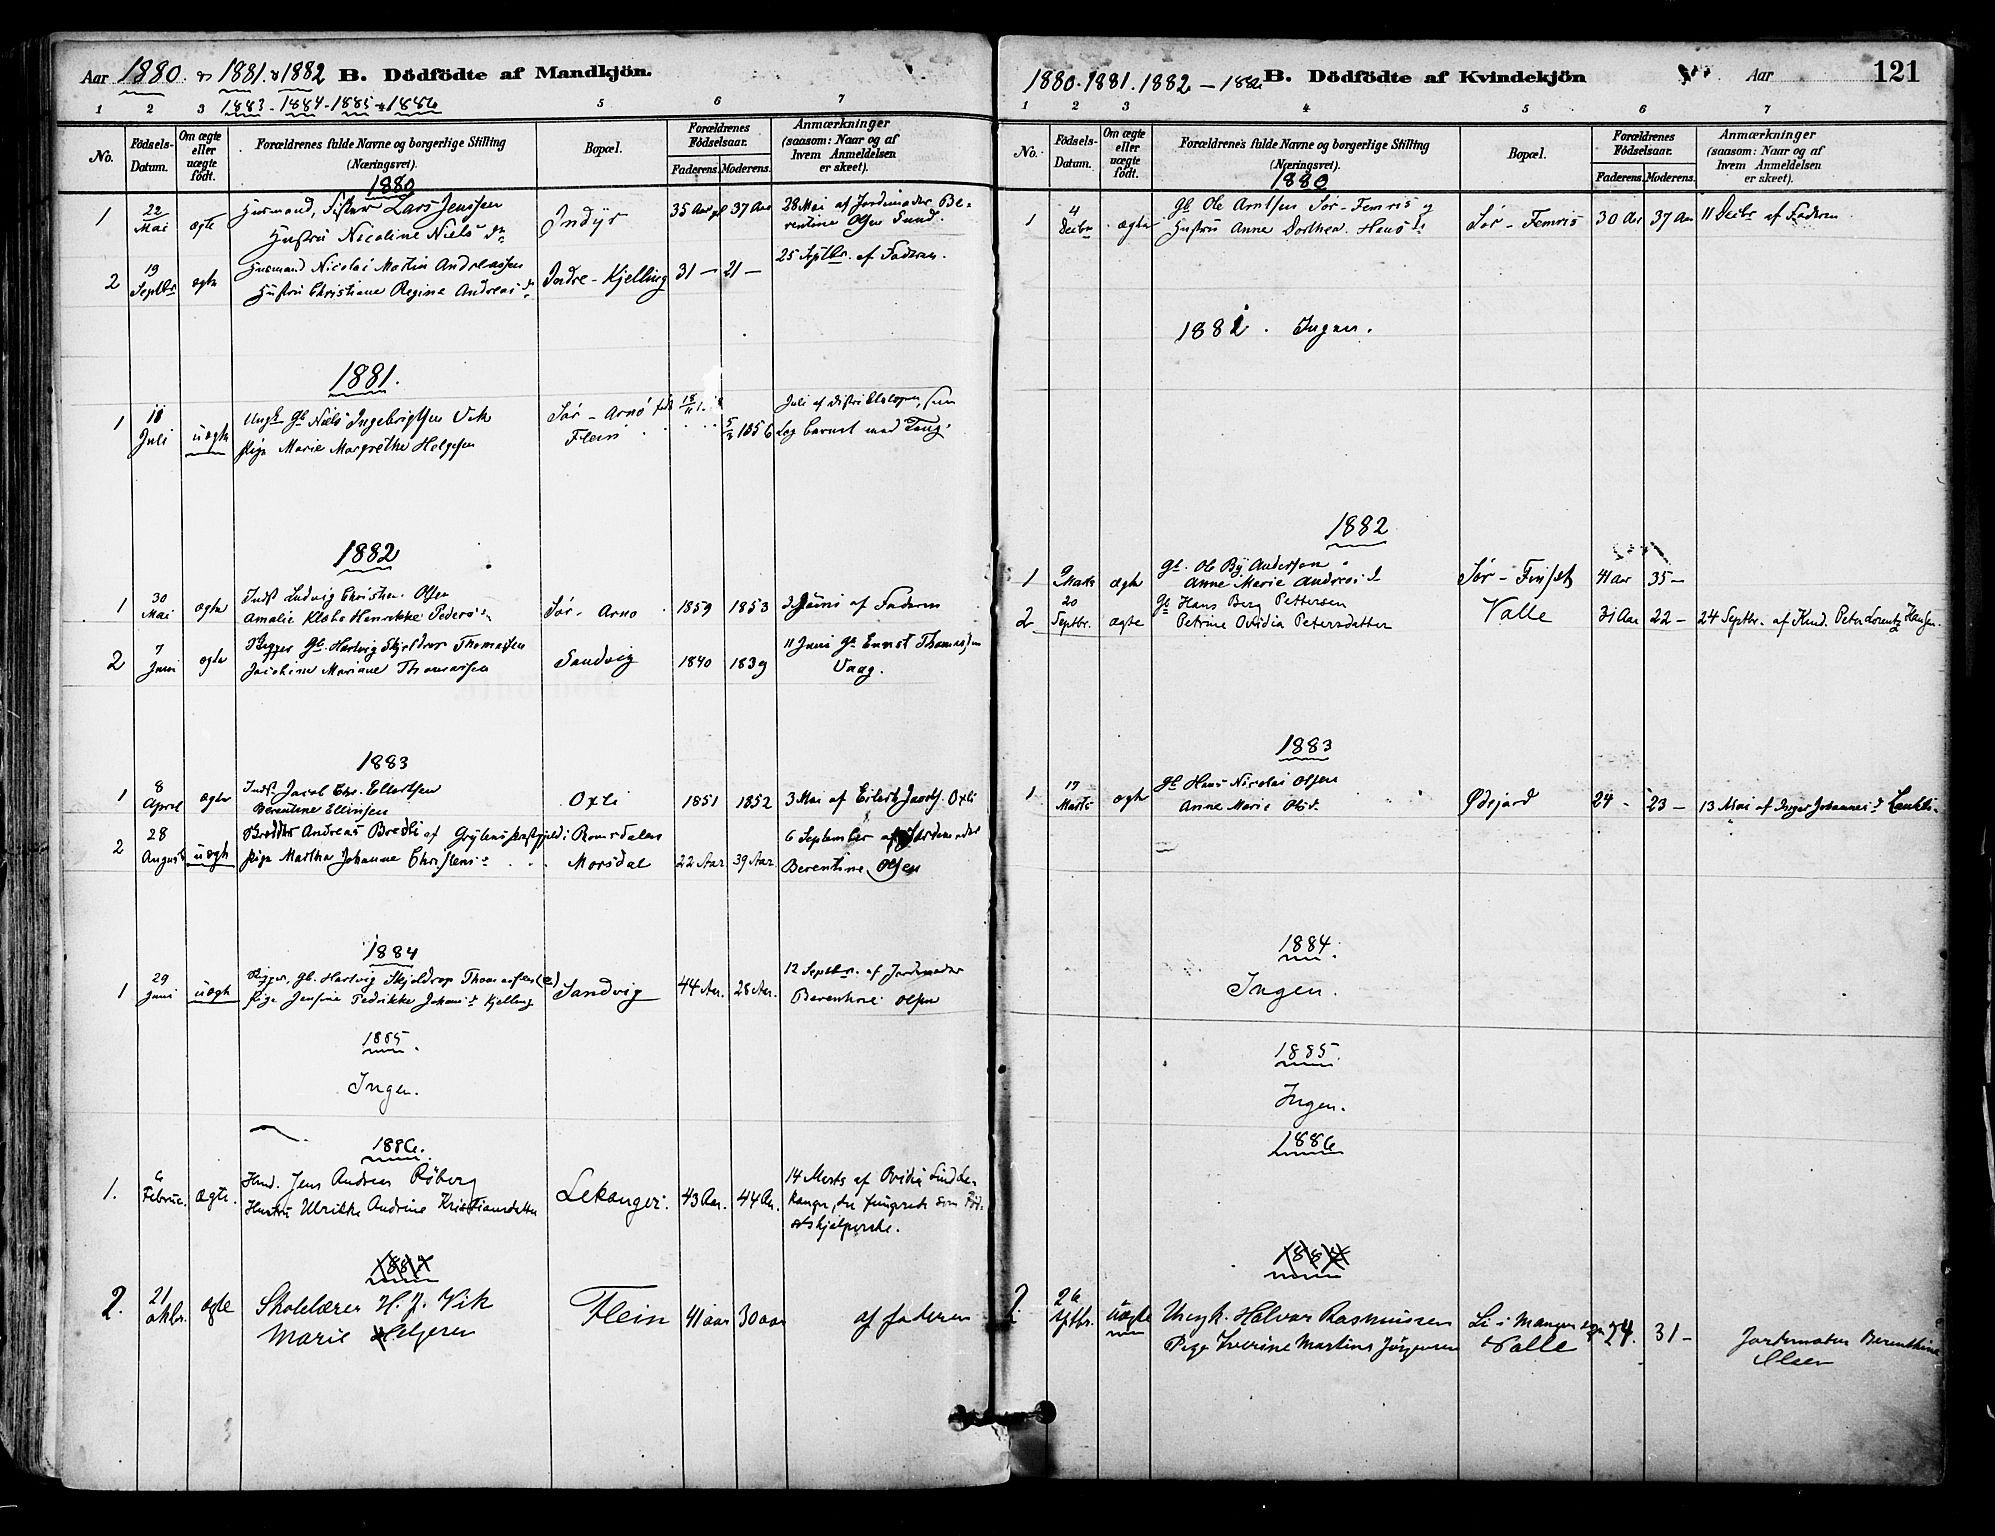 Aar 1880 & 1881 & 1882 B. Dödfödte af Mandkjön.
1883 - 1884 - 1885 & 1886
1 2 3 5 6 7
No.
Födsels-Datum.
Om ægte eller uægte födt.
Forældrenes fulde Navne og borgerlige Stilling (Næringsvei).
Bopæl.
Forældrenes Födselsaar.
Faderens. Moderens.
Anmærkninger (saasom: Naar og af hvem Anmeldelsen er skeet).
1880
1 22 Mai ægte Husmand, Fisker Lars Jenssen Indyr 35 Aar 37 Aar 28 Mai af Jordemoder Be-
Hustru Nicoline Niels dr rentine Olsen Sund.
2 19 Septbr ægte Husmand Nicolai Martin Andreassen Indre - Kjelling 31 - 21 - 25 Septbr. af Faderen.
Hustru Christiane Regine Andreas dr
1881.
1 18 Juli uægte Ungk Gb Niels Ingebrigtsen Vik Sør - Arnø
Pige Marie Margrethe Helgesen Flein 1856
1882
1 30 Mai ægte Inds Ludvig Christian Olsen Sør - Arnø 1859 1853 Juni af Faderen
Amalie Klæbo Henrikke Peders
2 7 Juni ægte Bygger Gb. Hartvig Skjeldrop Thomassen Sandvig 1840 1839 11 Juni Gb Ernst Thomassen
Jacobine Mariane Thomassen Vaag.
1883
1 8 April ægte Inds. Jacob Chr. Ellertsen Oxli 1851 1852 3 Mai af Eilert Jacobs. Oxli
Berentine Ellingsen
2 28 August uægte Andreas Bredli af Romsdalen 6 September af Jordemoder
Pige Martha Johanne Christens Morsdal 22 Aar 39 Aar Berentine Olsen
1884
1 29 Juni uægte Bygger, Gb. Hartvig Skjeldrop Thomassen (e) Sandvig 44 Aar. 28 Aar. 12 Septbr. af Jordemoder
Pige Jensine Fedrikke Johans d. Kjelling Berentine Olsen
1885.
Ingen.
1886.
1. 6 Februar. Ægte. Hmd. Jens Andreas Röberg Lekanger. 43 Aar. 44 Aar. 14 Marts af Ovidia Lind Le-
Hustru Ulrikke Andrine Kristiansdatter kanger, der fungerede som Föd-
selshjælperske.
1887
2. 21 oktbr. ægte Skolelærer H. J. Vik Flein 41 aar 30 aar af faderen
Marie Helgesen
1880. 1881. 1882 - 1886 B. Dödfödte af Kvindekjön Aar 121
1 2 3 4 5 6 7
No.
Födsels-Datum.
Om ægte eller uægte födt.
Forældrenes fulde Navne og borgerlige Stilling (Næringsvei).
Bopæl.
Forældrenes Födselsaar.
Faderens. Moderens.
Anmærkninger (saasom: Naar og af hvem Anmeldelsen er skeet).
1880
1 4 Decbr ægte Gb Ole Arntsen Sør - Femris og Sør - Femris 30 Aar 37 Aar 11 Decbr af Faderen
Hustru Anne Dorthea Hans d.
1881. Ingen.
1882
1 9 Marts ægte Gb. Ole By Andersen Sør - Finset 41 aar 35 -
Anne Marie Andreas d
2 20 Septbr. ægte Gb Hans Berg Pettersen Valle 31 Aar 22 - 24 Septbr. af Hmd. Peter Lorentz Hansen.
Petrine Ovidia Petersdatter
1883
1 17 Marts ægte Gb Hans Nicolai Olsen Ødejord 24 - 23 - 13 Mai af Inger Johannes d
Anne Marie Ols d.
1884.
Ingen.
1885.
Ingen.
1886
1886
2. 26 Sptbr. uægte Ungk. Halvar Rasmussen Li i Manger sogn 24. 31 - Jordemoder Berenthine
Pige Iverine Martine Jörgensen & Valle Olsen